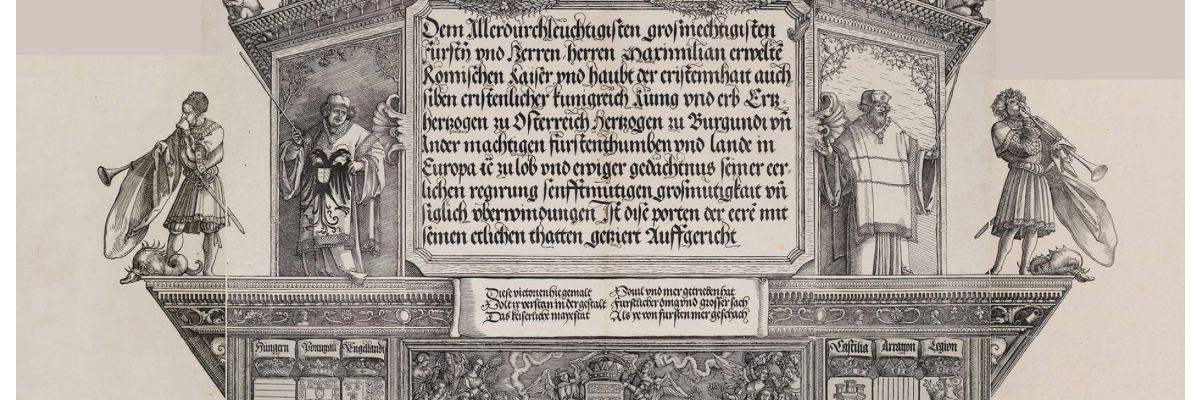 Dem Allerdurchleuchtigisten grosmechtigisten
Fürstñ vnd Herren herren Maximilian erweltē
Romischen Kaiser vnd haubt der cristennhait auch
siben cristenlicher kunigreich Kunig vnd erb Ertz-
hertzogen zu Osterreich Hertzogen zu Burgundi vñ
Ander machtigen fürstenthumben vnd lande in
Europa ꝛc zu lob vnd ewiger gedächtnus seiner eer-
lichen regirung senfftmutigen grosmutigkait vñ
siglich vberwindungen Ist disē porten der eerē mit
seinen etlichen thatten getziert Auffgericht
Dise victorien hie gemalt
Wolt ir verstan in der gestalt
Das keiserliche mayestat
Souil vnd mer getrieben hat
Furstlicher ding vnd grosser sach
Als ye von fursten mer geschach
Hungern
Portugall
Engellandt
Castilia
Arragon
Legion